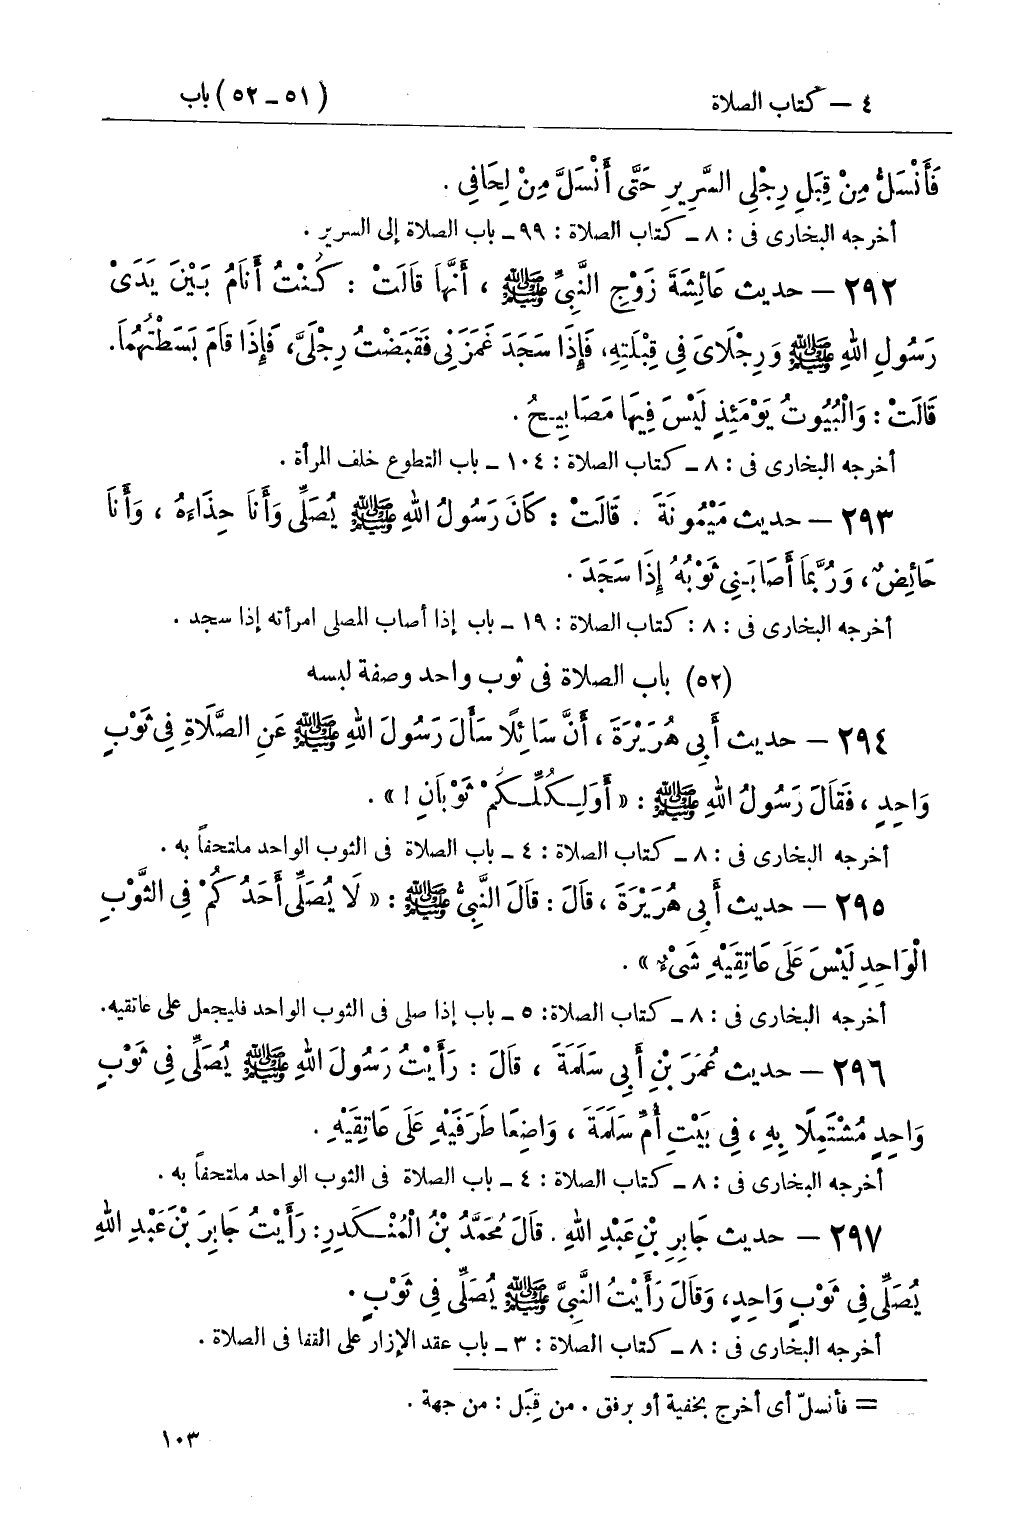 ٤ — كتاب الصلاة
(٥١ ـ ٥٢) باب
فَأَنْسَلُّ مِنْ قِبَلِ رِجْلِى السَّرِيرِ حَتَّى أَنْسَلَّ مِنْ لِحَافِى .
أخرجه البخارى فى : ٨ ـ كتاب الصلاة : ٩٩ ـ باب الصلاة إلى السرير .
٢٩٢ — حديث عَائِشَةَ زَوْجِ النَّبِىِّ ﷺ ، أَنَّهَا قَالَتْ : كُنْتُ أَنَامُ بَيْنَ يَدَىْ
رَسُولِ اللهِ ﷺ وَرِجْلَاىَ فِى قِبْلَتِهِ، فَإِذَا سَجَدَ غَمَزَنِى فَقَبَضْتُ رِجْلَىَّ، فَإِذَا قَامَ بَسَطْتُهُمَا.
قَالَتْ : وَالْبُيُوتُ يَوْمَئِذٍ لَيْسَ فِيهَا مَصَابِيحُ .
أخرجه البخارى فى : ٨ ـ كتاب الصلاة : ١٠٤ ـ باب التطوع خلف المرأة .
٢٩٣ — حديث مَيْمُونَةَ . قَالَتْ : كَانَ رَسُولُ اللهِ ﷺ يُصَلِّى وَأَنَا حِذَاءَهُ ، وَأَنَا
حَائِضٌ، وَرُبَّمَا أَصَابَنِى ثَوْبُهُ إِذَا سَجَدَ .
أخرجه البخارى فى : ٨ : كتاب الصلاة : ١٩ ـ باب إذا أصاب المصلى امرأته إذا سجد .
(٥٢) باب الصلاة فى ثوب واحد وصفة لبسه
٢٩٤ — حديث أَبِى هُرَيْرَةَ ، أَنَّ سَائِلًا سَأَلَ رَسُولَ اللهِ ﷺ عَنِ الصَّلَاةِ فِى ثَوْبٍ
وَاحِدٍ ، فَقَالَ رَسُولُ اللهِ ﷺ : « أَوَلِكُلِّكُمْ ثَوْبَانِ ! » .
أخرجه البخارى فى : ٨ ـ كتاب الصلاة : ٤ ـ باب الصلاة فى الثوب الواحد ملتحفاً به .
٢٩٥ — حديث أَبِى هُرَيْرَةَ ، قَالَ : قَالَ النَّبِىُّ ﷺ : « لَا يُصَلِّى أَحَدُكُمْ فِى الثَّوْبِ
الْوَاحِدِ لَيْسَ عَلَى عَاتِقَيْهِ شَىْءٌ » .
أخرجه البخارى فى : ٨ ـ كتاب الصلاة: ٥ ـ باب إذا صلى فى الثوب الواحد فليجعل على عاتقيه.
٢٩٦ — حديث عُمَرَ بْنِ أَبِى سَلَمَةَ ، قَالَ : رَأَيْتُ رَسُولَ اللهِ ﷺ يُصَلِّى فِى ثَوْبٍ
وَاحِدٍ مُشْتَمِلًا بِهِ ، فِى بَيْتِ أُمِّ سَلَمَةَ ، وَاضِعًا طَرَفَيْهِ عَلَى عَاتِقَيْهِ .
أخرجه البخارى فى : ٨ ـ كتاب الصلاة : ٤ ـ باب الصلاة فى الثوب الواحد ملتحفاً به .
٢٩٧ — حديث جَابِرِ بْنِ عَبْدِ اللهِ . قَالَ مُحَمَّدُ بْنُ الْمُنْكَدِرِ : رَأَيْتُ جَابِرَ بْنَ عَبْدِ اللهِ
يُصَلِّى فِى ثَوْبٍ وَاحِدٍ، وَقَالَ رَأَيْتُ النَّبِىَّ ﷺ يُصَلِّى فِى ثَوْبٍ .
أخرجه البخارى فى : ٨ ـ كتاب الصلاة : ٣ ـ باب عقد الإزار على القفا فى الصلاة .
= فأنسلّ أى أخرج بخفية أو برفق . من قِبَل : من جهة .
١٠٣